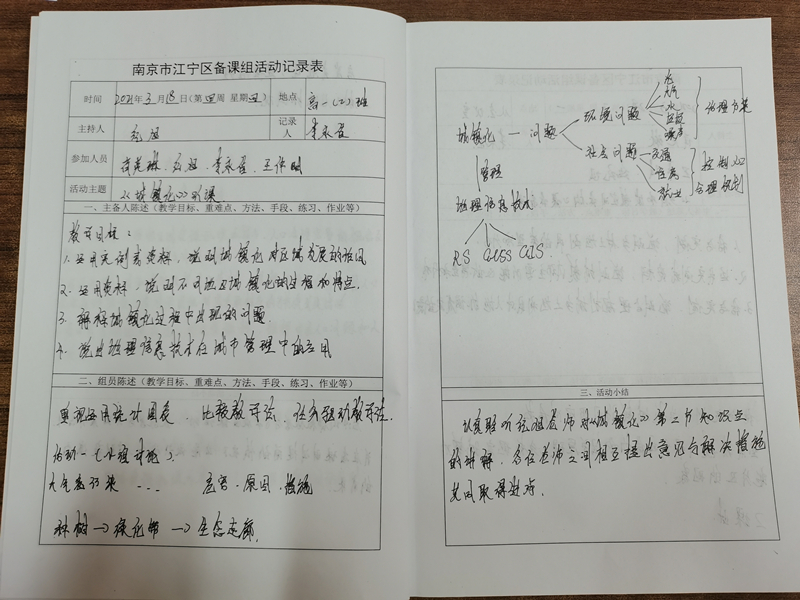 南京市江宁区备课组活动记录表
时间 2021年3月18日（第四周 星期四） 地点 高一（2）班
主持人 记录人
参加人员
活动主题 《城镇化》听课
一、主备人陈述（教学目标、重难点、方法、手段、练习、作业等）
教学目标：
1. 运用实例或资料，说明城镇化对区域发展的作用
2. 运用资料，说明不同地区城镇化的过程和特点.
3. 解释城镇化过程中出现的问题.
4. 说出地理信息技术在城市管理中的应用
二、组员陈述（教学目标、重难点、方法、手段、练习、作业等）
重视运用统计图表，比较教学法，任务驱动教学法.
活动一七小组讨论：
大气污染 …… 危害、原因、措施
种树→绿化带→生态走廊.
城镇化 — 问题
环境问题
大气
水
噪声
治理方案
社会问题
交通
住房
就业
控制人口
合理规划
管理
地理信息技术
RS GNSS GIS
三、活动小结
认真聆听 老师对《城镇化》第二节知识点
的讲解，各位老师之间相互提出意见与解决措施
共同取得进步.